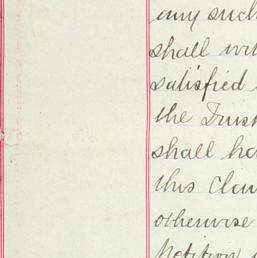 any such
shall wi
satisfied
the Trus
shall ha
this Clau
otherwise
Petition